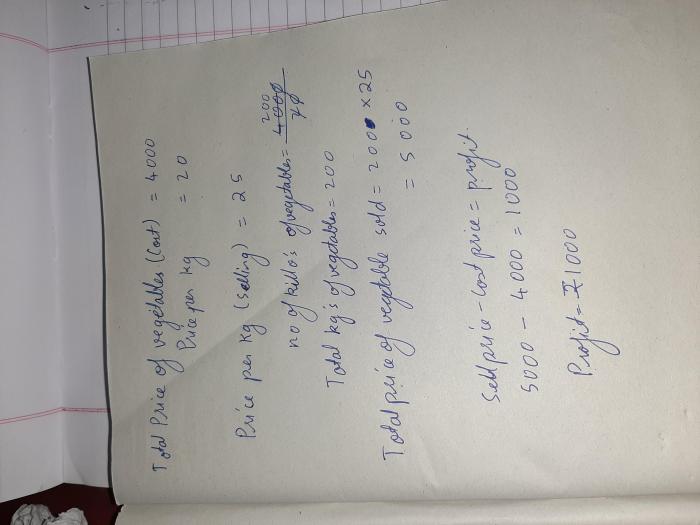 Total Price of vegetables (Cost) = 4000
Price per kg = 20
Price per kg (Selling) = 25
no of killo's of vegetables = 4000/20 200
Total kg's of vegetables = 200
Total price of vegetable sold = 200 × 25
= 5000
Sell price - Cost price = profit.
5000 - 4000 = 1000
Profit = ₹1000